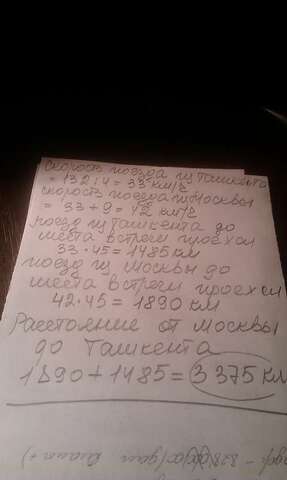 Скорость поезда из Ташкента
= 132:4 = 33 км/ч
скорость поезда из Москвы
= 33 + 9 = 42 км/ч
поезд из Ташкента до
места встречи проехал
33·45 = 1485 км
поезд из Москвы до
места встречи проехал
42·45 = 1890 км
Расстояние от Москвы
до Ташкента
1890 + 1485 = 3 375 км